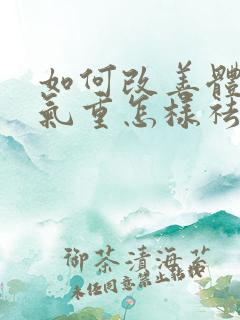 如何改善體
氣重怎樣祛
御茶漬海苔
未经同意禁止转载